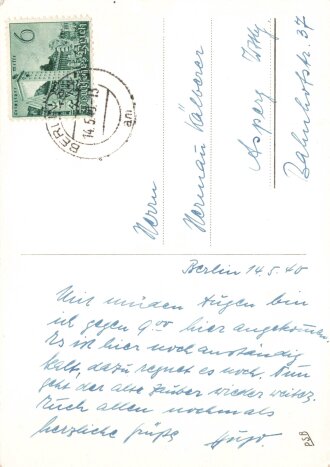 6
BERLIN
14.5.40
Herrn
Hermann Kälberer
Asperg Wttg.
Bahnhofstr. 37
Berlin 14.5.40
Mit müden Augen bin
ich gegen 9.00 hier angekommen.
Es ist hier noch anständig
kalt, dazu regnet es noch. Nun
geht der alte Zauber wieder weiter.
Euch allen nochmals
herzliche Grüße Hugo.